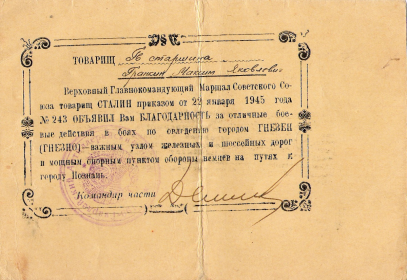 ТОВАРИЩ Гв старшина
Гранкин Максим Яковлевич
Верховный Главнокомандующий Маршал Советского Со-
юза товарищ СТАЛИН приказом от 22 января 1945 года
№ 243 ОБЪЯВИЛ Вам БЛАГОДАРНОСТЬ за отличные бое-
вые действия в боях по овлдению городом ГНЕЗЕН
(ГНЕЗНО)—важным узлом железных и шоссейных дорог
и мощным опорным пунктом обороны немцев на путях к
городу Познань.
Командир части